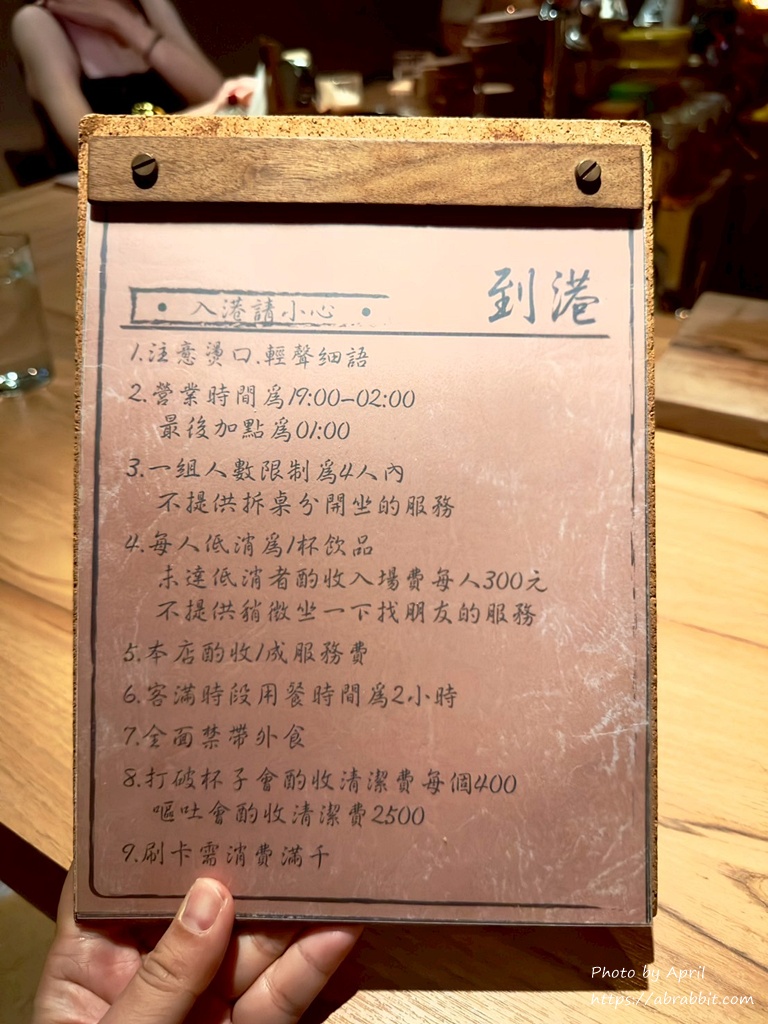 到港
• 入港請小心 •
1.注意燙口.輕聲細語
2.營業時間爲19:00-02:00
最後加點爲01:00
3.一組人數限制爲4人內
不提供拆桌分開坐的服務
4.每人低消爲1杯飲品
未達低消者酌收入場費每人300元
不提供稍微坐一下找朋友的服務
5.本店酌收1成服務費
6.客滿時段用餐時間爲2小時
7.全面禁帶外食
8.打破杯子會酌收清潔費每個400
嘔吐會酌收清潔費2500
9.刷卡需消費滿千
Photo by April
https://abrabbit.com